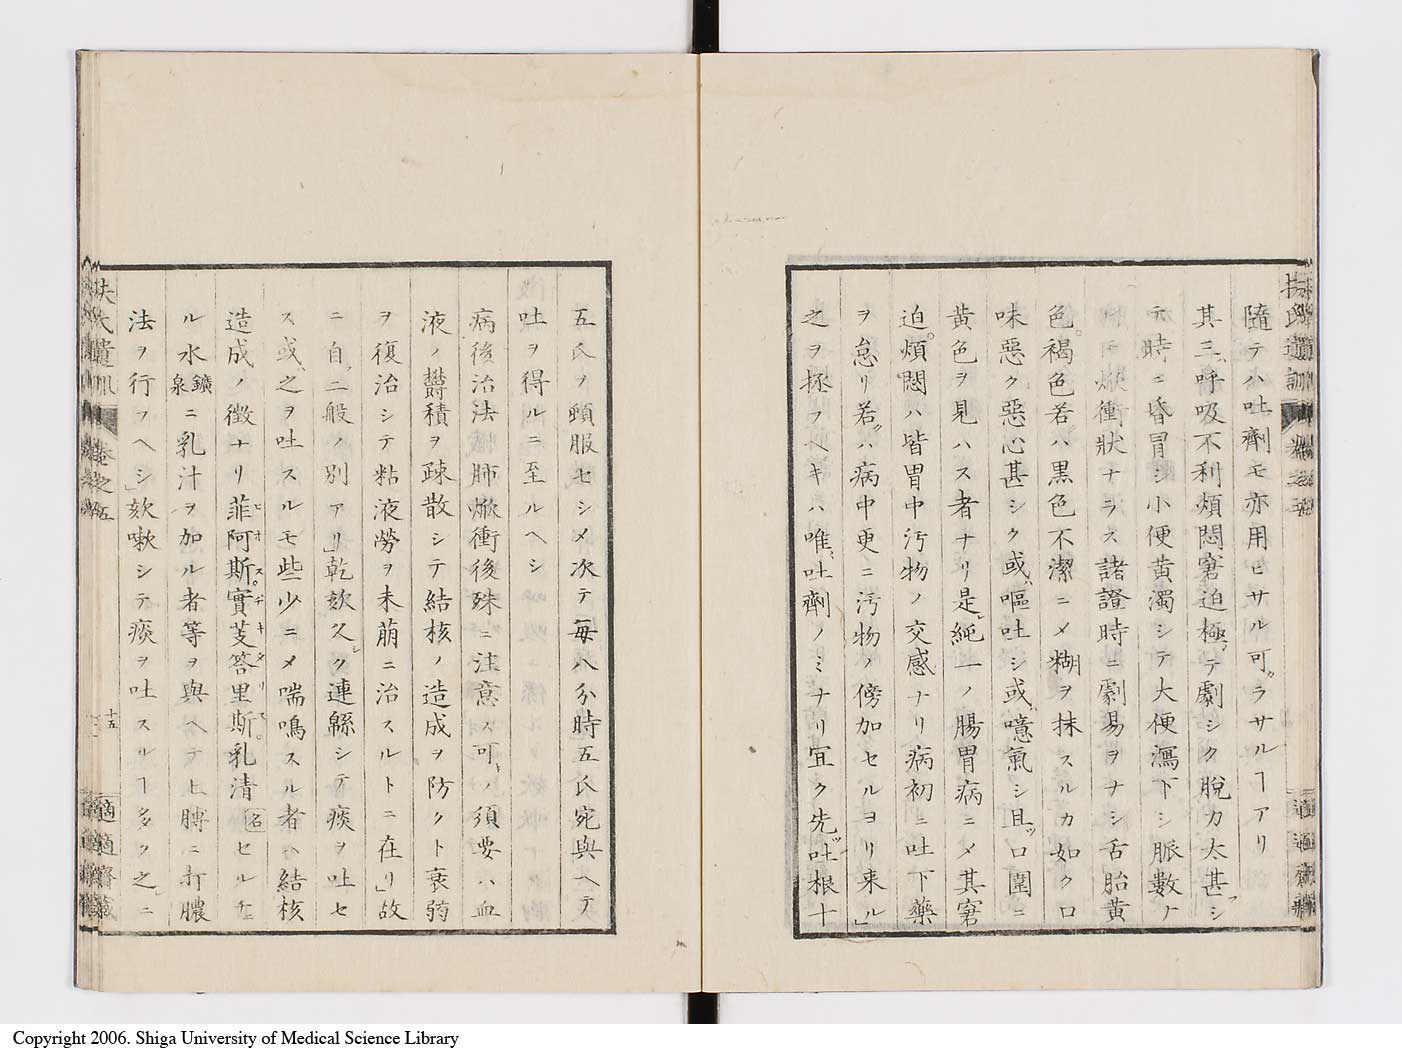 隨テハ吐劑モ亦用ヒサル可ラサルヿアリ
其三、呼吸不利煩悶窘迫極テ劇シク脫力太甚シ
テ時ニ昏冒シ小便黃濁シテ大便瀉下シ脈數ノ
焮衝狀ナラス諸證時ニ劇易ヲナシ舌胎黃
色褐色若ハ黒色不潔ニメ糊ヲ抹スルカ如ク口
味惡ク惡心甚シク或嘔吐シ或噫氣シ且ツ口圍ニ
黃色ヲ見ハス者ナリ是レ純一ノ腸胃病ニメ其窘
迫煩悶ハ皆胃中汚物ノ交感ナリ病初ニ吐下藥
ヲ怠リ若ハ病中更ニ汚物ノ傍加セルヨリ来ル」
之ヲ拯フヘキハ唯吐劑ノミナリ宜ク先ツ吐根十
五氏ノ頓服セシメ次テ每八分時五氏宛與ヘテ
吐ヲ得ルニ至ルヘシ
病後治法熾肺焮衝後殊ニ注意ス可キノ須要ハ血
液ノ鬱積ヲ疎散シテ結核ノ造成ヲ防クト衰弱
ヲ復治シテ粘液勞ヲ未萠ニ治スルトニ在リ」故
ニ自二般ノ別アリ」乾欬久シク連緜シテ痰ヲ吐セ
ス或之ヲ吐スルモ些少ニメ喘鳴スル者ハ結核
造成ノ徵ナリ菲阿斯實芰答里斯乳清名セルチ
ル水鑛泉ニ乳汁ヲ加ル者等ヲ與ヘテ上膊ニ打膿
法ヲ行フヘシ」欬嗽シテ痰ヲ吐スルヿ多ク之ニ
扶氏遺訓 卷之五
十五
適適齋藏
Copyright 2006. Shiga University of Medical Science Library